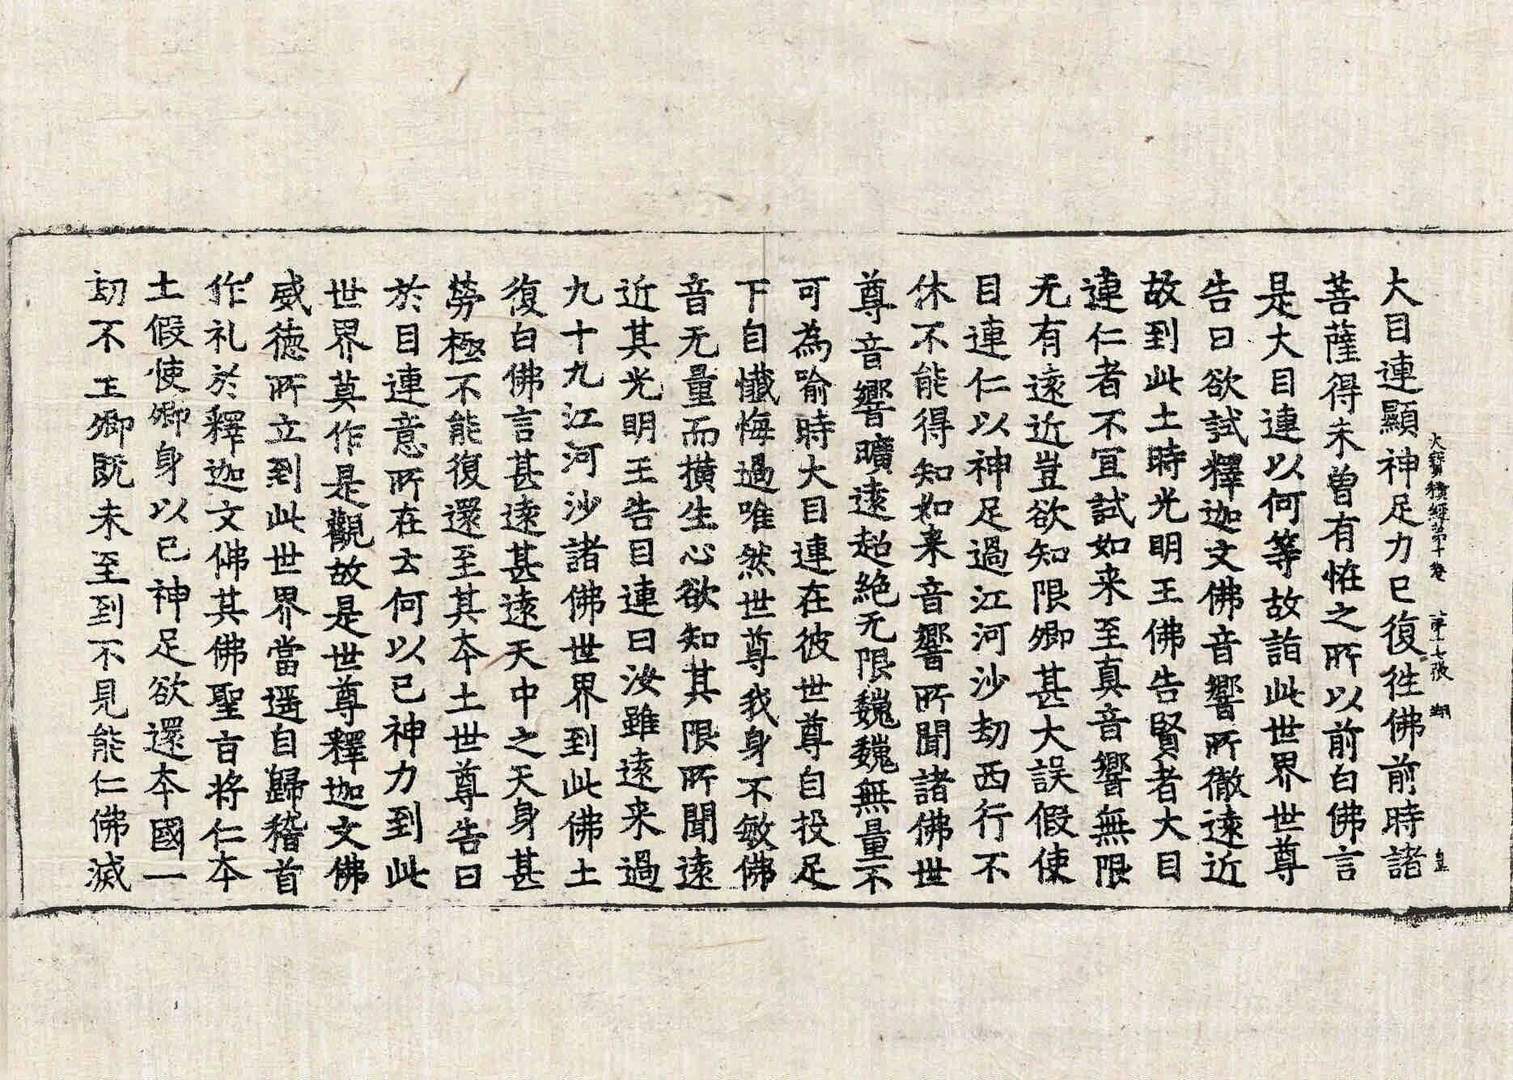 大寶積經第十卷 第十七張 翔 皇
大目連顯神足力已復徃佛前時諸
菩薩得未曾有恠之所以前白佛言
是大目連以何等故詣此世界世尊
告曰欲試釋迦文佛音響所徹遠近
故到此土時光明王佛告賢者大目
連仁者不冝試如来至真音響無限
无有遠近豈欲知限卿甚大誤假使
目連仁以神足過江河沙劫西行不
休不能得知如来音響所聞諸佛世
尊音響曠遠超絶无限巍巍無量不
可為喻時大目連在彼世尊自投足
下自懺悔過唯然世尊我身不敏佛
音无量而横生心欲知其限所聞遠
近其光明王告目連曰汝雖遠来過
九十九江河沙諸佛世界到此佛土
復白佛言甚遠甚遠天中之天身甚
勞極不能復還至其夲土世尊告曰
於目連意所在云何以己神力到此
世界莫作是觀故是世尊釋迦文佛
威德所立到此世界當遥自歸稽首
作礼於釋迦文佛其佛聖旨将仁夲
土假使卿身以己神足欲還夲國一
劫不 卿既未至到不見能仁佛滅